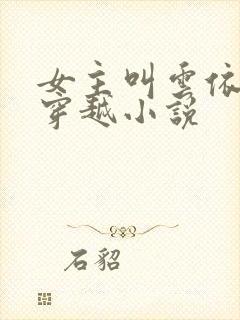 女主叫雲依
穿越小說
石貂